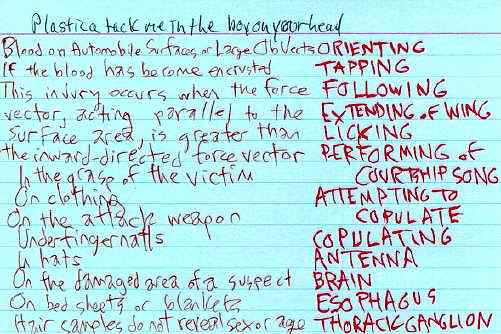 Plastic attack me in the box on your head
Blood on Automobile Surfaces or Large Objects ORIENTING
If the blood has become encrusted TAPPING
This injury occurs when the force FOLLOWING
vector, acting parallel to the EXTENDING OF WING
Surface area, is greater than LICKING
the inward-directed force vector PERFORMING OF
In the grasp of the victim COURTSHIP SONG
On clothing ATTEMPTING TO
On the attack weapon COPULATE
Underfingernails COPULATING
In hats ANTENNA
On the damaged area of a suspect BRAIN
On bed sheets or blankets ESOPHAGUS
Hair samples do not reveal sex or age THORACIC GANGLION